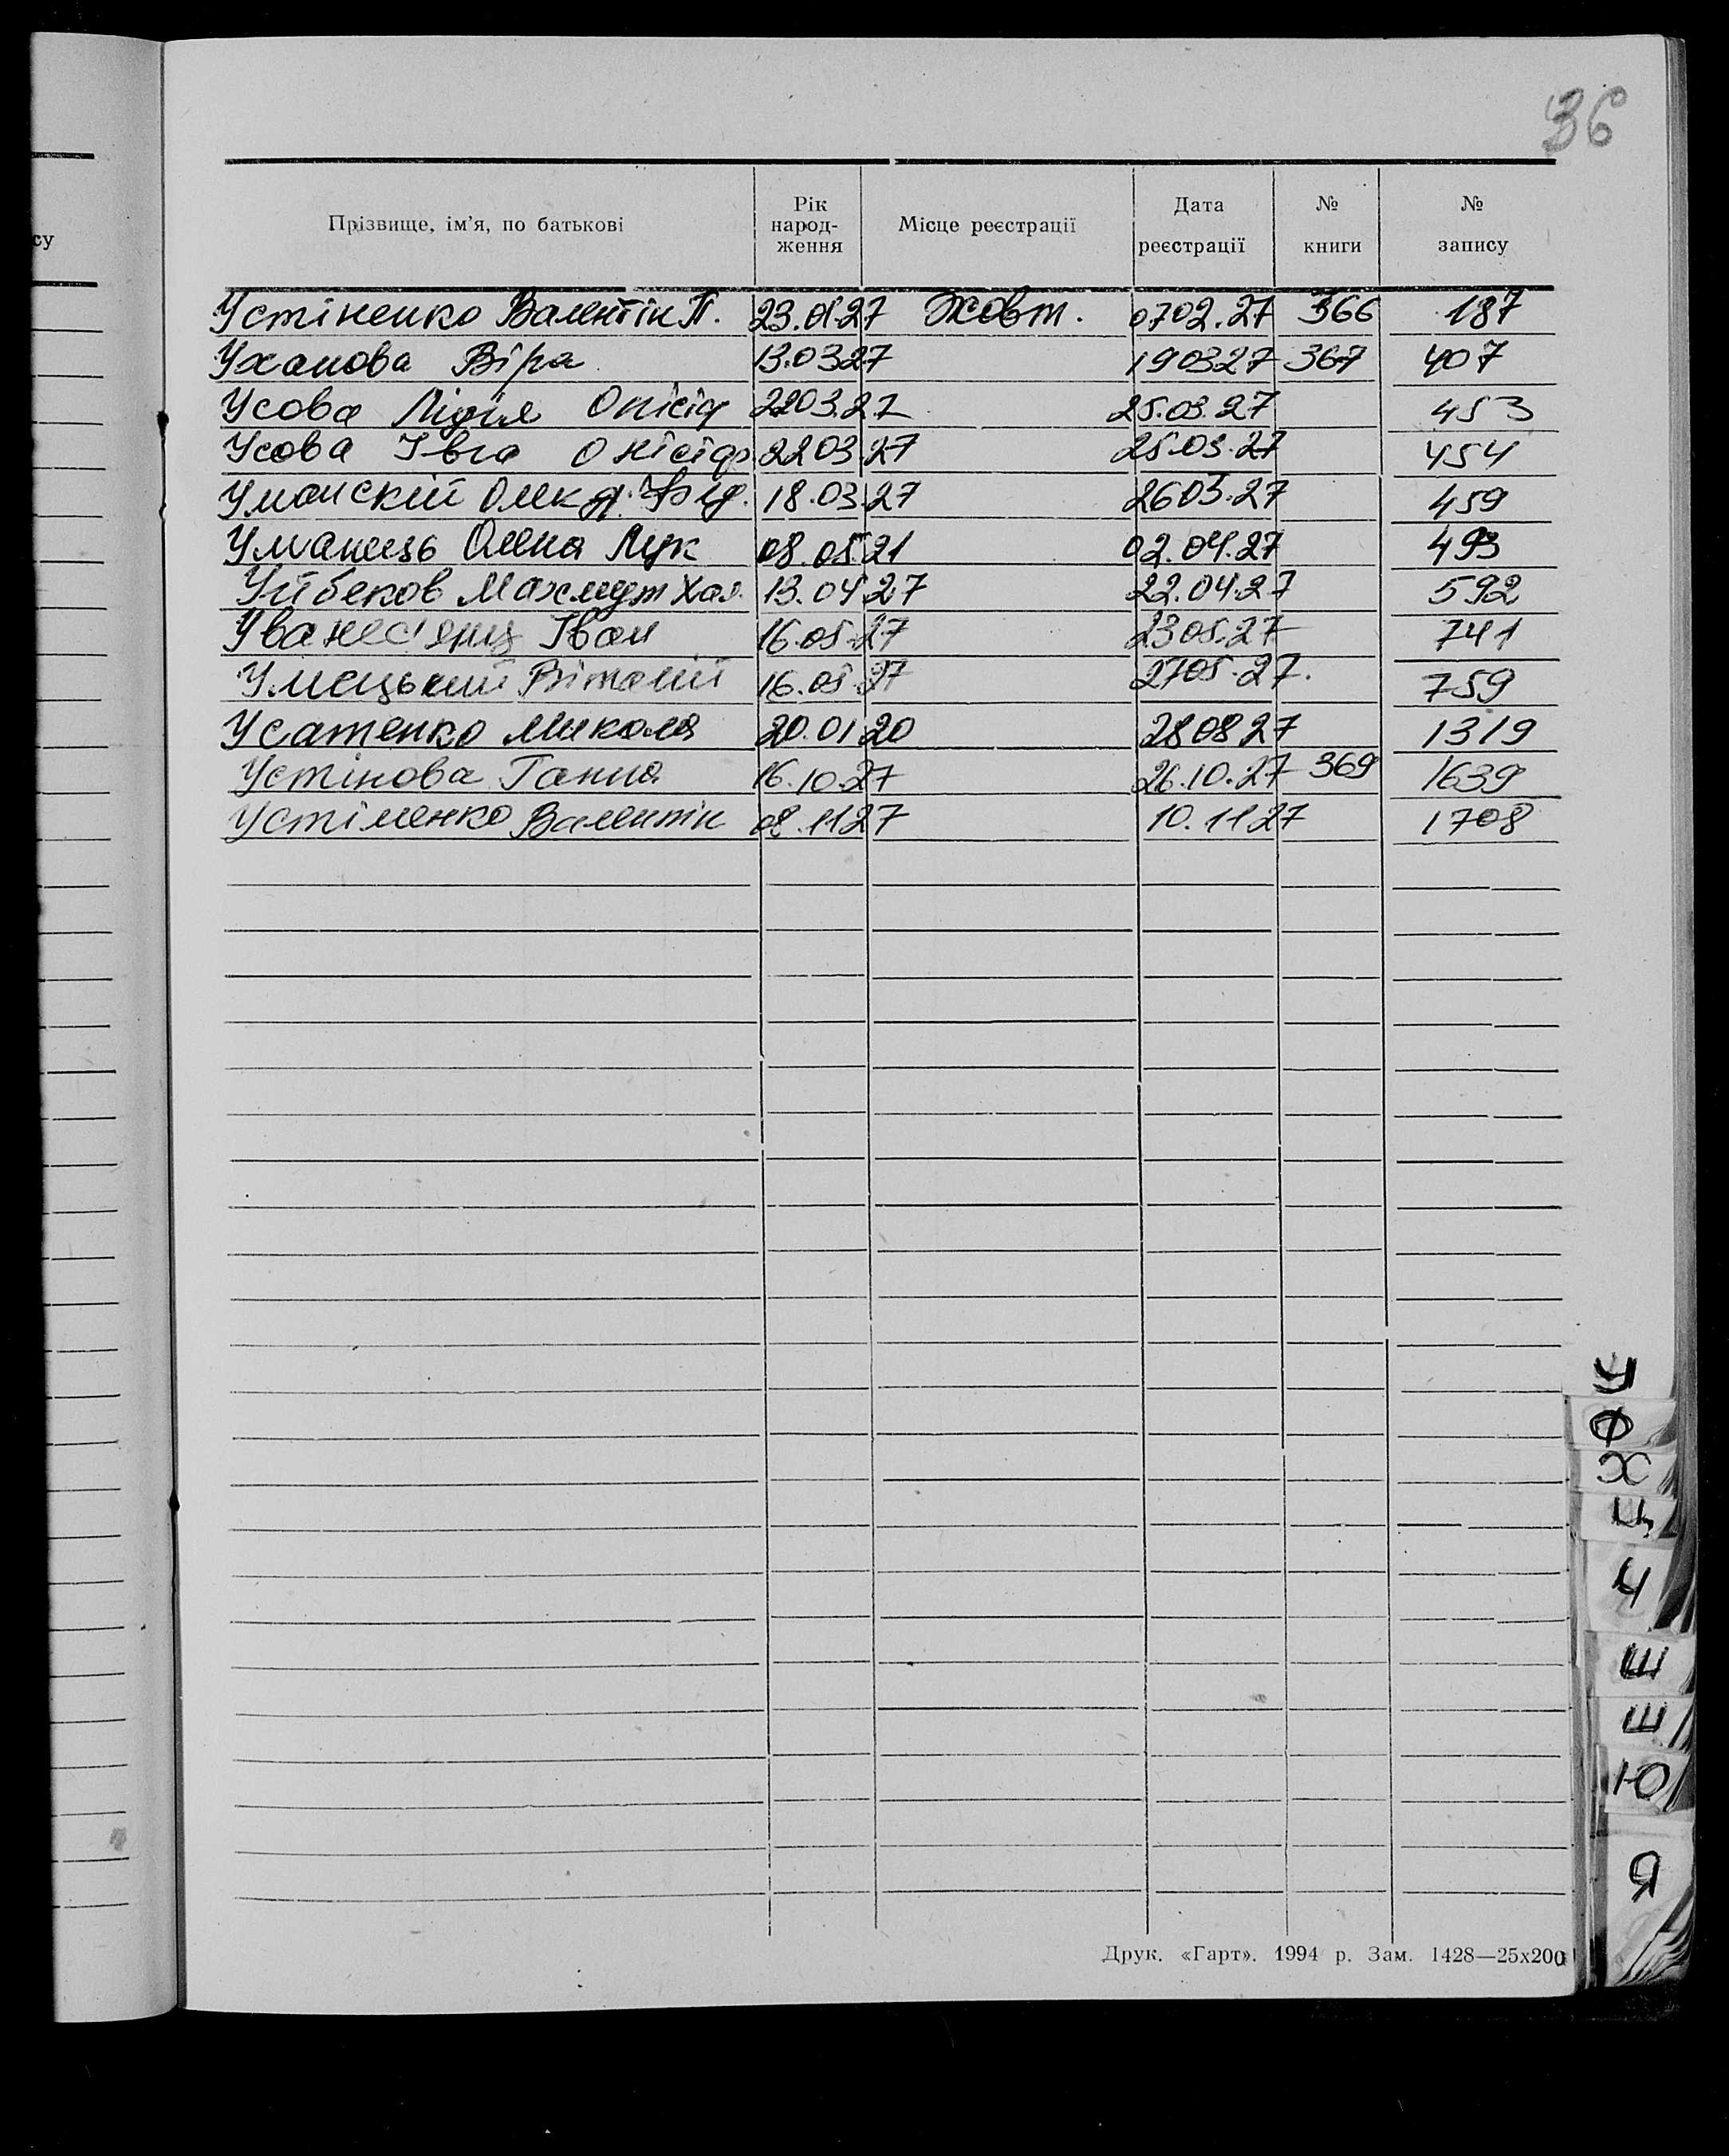 36
су
Прізвище, ім'я, по батькові Рік народ- ження Місце реєстрації Дата реєстрації № книги № запису
Устіненко Валентін П. 23.01.27 Жовт. 0702.27 366 187
Уханова Віра 13.0327 190327 367 407
Усова Лідія Онісід 2203.27 25.03.27 453
Усова Івга Онісіф 2203.27 25.03.27 454
Уманскій Олекд. 18.03.27 2603.27 459
Уманець Олена Лук 08.05.21 02.04.27 493
Уйбеков Махмут Хал. 13.04.27 22.04.27 592
Іван 16.05.27 2305.27 741
Умецький Віталій 16.05.27 2705.27. 759
Усатенко Микола 20.01.20 280827 1319
Устінова Ганна 16.10.27 26.10.27 369 1639
Устіменко Валентін 08.1127 10.1127 1708
У
Ф
Х
Ц
Ч
Ш
Ш
Ю
Я
Друк. «Гарт». 1994 р. Зам. 1428—25х200